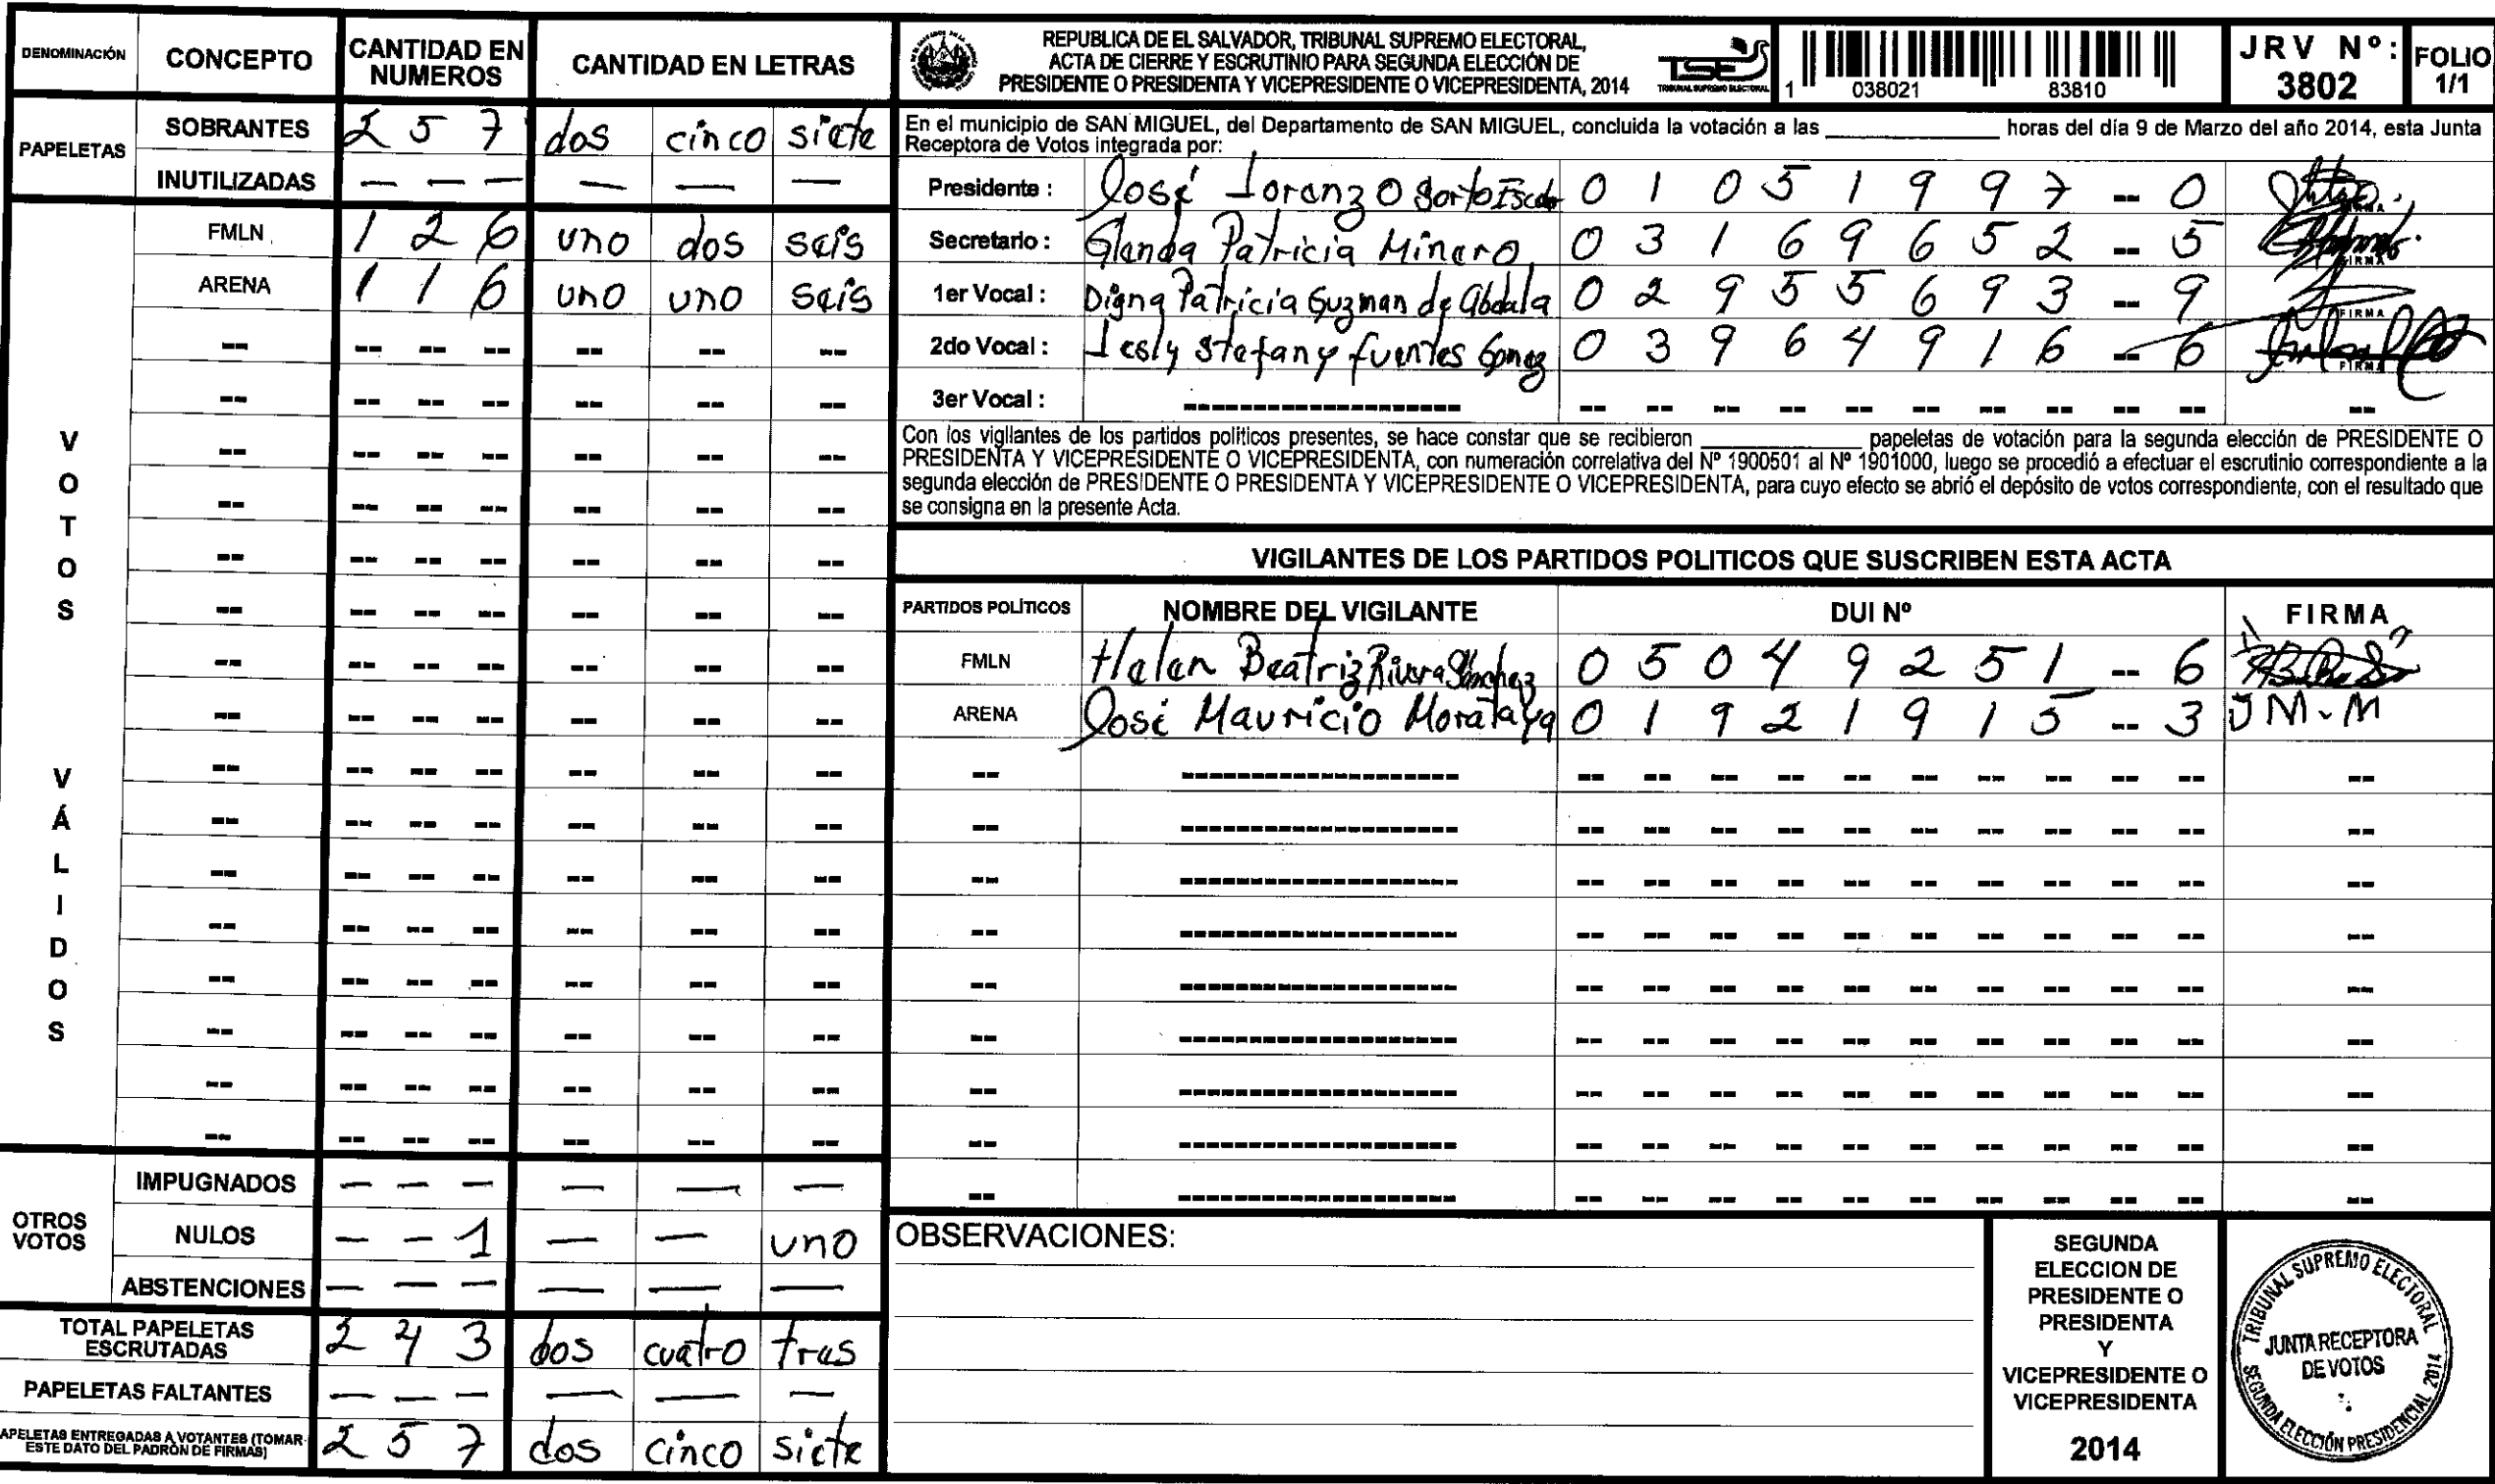 DENOMINACIÓN CONCEPTO CANTIDAD EN NUMEROS CANTIDAD EN LETRAS
PAPELETAS
SOBRANTES 2 5 7 dos cinco siete
INUTILIZADAS — — — — — —
VOTOS VÁLIDOS
FMLN 1 2 6 uno dos seis
ARENA 1 1 6 uno uno seis
OTROS VOTOS
IMPUGNADOS — — — — — —
NULOS — — 1 — — uno
ABSTENCIONES — — — — — —
TOTAL PAPELETAS ESCRUTADAS 2 4 3 dos cuatro tres
PAPELETAS FALTANTES — — — — — —
APELETAS ENTREGADAS A VOTANTES (TOMAR ESTE DATO DEL PADRÓN DE FIRMAS) 2 5 7 dos cinco siete
REPUBLICA DE EL SALVADOR, TRIBUNAL SUPREMO ELECTORAL,
ACTA DE CIERRE Y ESCRUTINIO PARA SEGUNDA ELECCIÓN DE
PRESIDENTE O PRESIDENTA Y VICEPRESIDENTE O VICEPRESIDENTA, 2014
TSE
TRIBUNAL SUPREMO ELECTORAL
1 038021 83810
JRV Nº: 3802
FOLIO 1/1
En el municipio de SAN MIGUEL, del Departamento de SAN MIGUEL, concluida la votación a las ____________ horas del día 9 de Marzo del año 2014, esta Junta
Receptora de Votos integrada por:
Presidente : José Lorenzo Sorto 0 1 0 5 1 9 9 7 -- 0 FIRMA
Secretario : Glenda Patricia Minero 0 3 1 6 9 6 5 2 -- 5 FIRMA
1er Vocal : Digna Patricia Guzman de Abdala 0 2 9 5 5 6 9 3 -- 9 FIRMA
2do Vocal : Lesly Stefany Fuentes Gomez 0 3 9 6 4 9 1 6 -- 6 FIRMA
3er Vocal :
Con los vigilantes de los partidos políticos presentes, se hace constar que se recibieron ____________ papeletas de votación para la segunda elección de PRESIDENTE O
PRESIDENTA Y VICEPRESIDENTE O VICEPRESIDENTA, con numeración correlativa del Nº 1900501 al Nº 1901000, luego se procedió a efectuar el escrutinio correspondiente a la
segunda elección de PRESIDENTE O PRESIDENTA Y VICEPRESIDENTE O VICEPRESIDENTA, para cuyo efecto se abrió el depósito de votos correspondiente, con el resultado que
se consigna en la presente Acta.
VIGILANTES DE LOS PARTIDOS POLITICOS QUE SUSCRIBEN ESTA ACTA
PARTIDOS POLÍTICOS NOMBRE DEL VIGILANTE DUI Nº FIRMA
FMLN Helen Beatriz Rivera Sánchez 0 5 0 4 9 2 5 1 -- 6
ARENA José Mauricio Morataya 0 1 9 2 1 9 1 5 -- 3 JM.M
OBSERVACIONES:
SEGUNDA
ELECCION DE
PRESIDENTE O
PRESIDENTA
Y
VICEPRESIDENTE O
VICEPRESIDENTA
2014
TRIBUNAL SUPREMO ELECTORAL
JUNTA RECEPTORA
DE VOTOS
SEGUNDA ELECCIÓN PRESIDENCIAL 2014